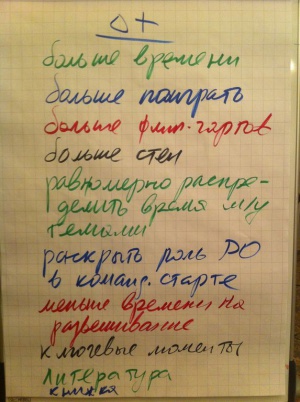 Δ +
больше времени
больше поиграть
больше флип-чартов
больше стен
равномерно распре-
делить время м/у
темами
раскрыть роль PO
в команд. старте
меньше времени на
развешивание
ключевые моменты
литература
книжка